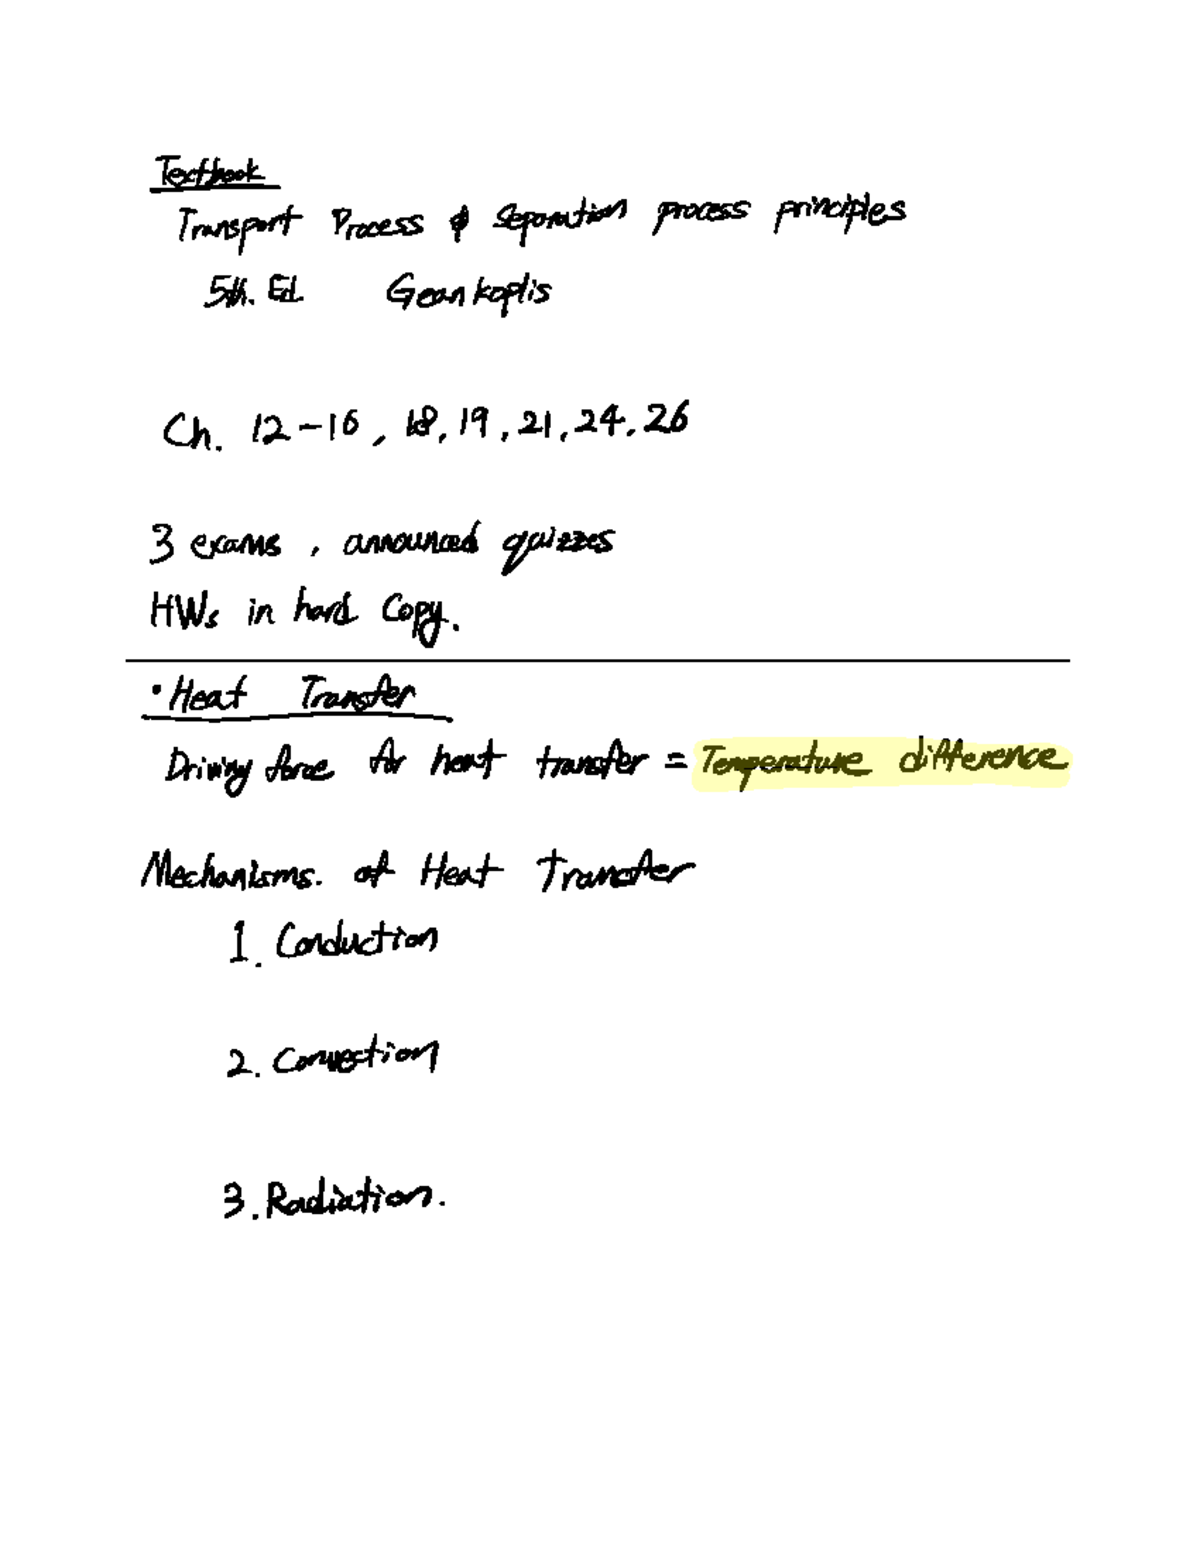 Textbook
Transport Process & Separation process principles
5th. Ed. Geankoplis
Ch. 12-16, 18, 19, 21, 24, 26
3 exams, announced quizzes
HWs in hard copy.
• Heat Transfer
Driving force for heat transfer = Temperature difference
Mechanisms. of Heat Transfer
1. Conduction
2. Convection
3. Radiation.